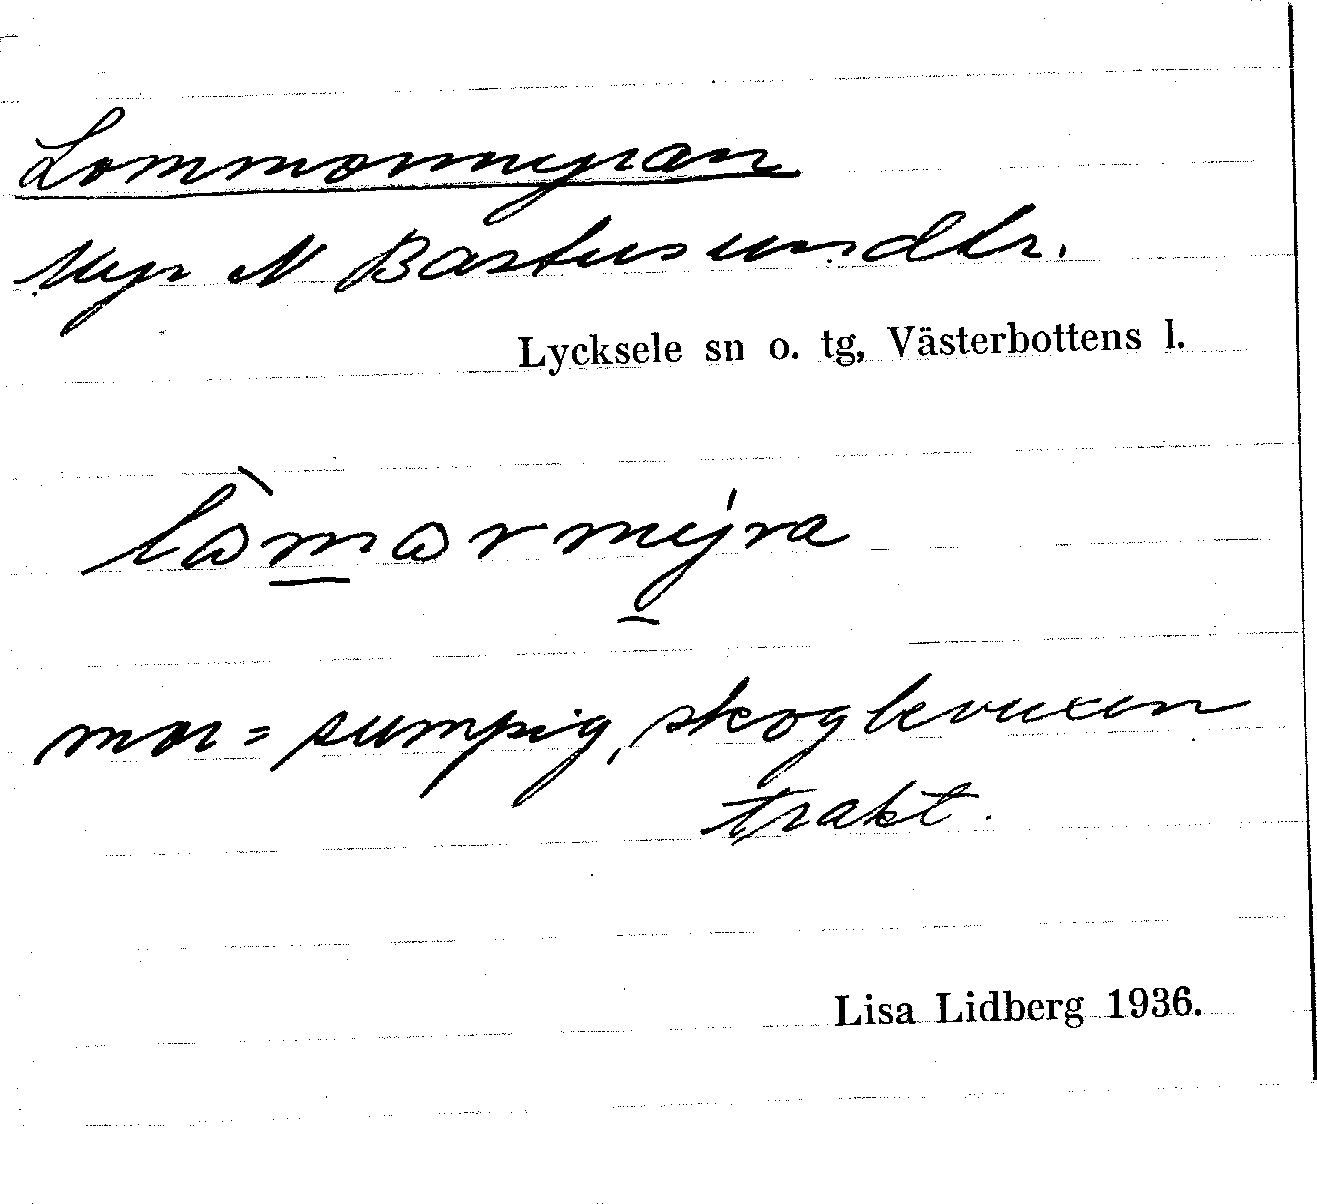 Lommormyran
Myr N Bastusundtr.
Lycksele sn o. tg, Västerbottens l.
lòm̲ormy̲̍ra
mor = sumpig, skogbevuxen
trakt.
Lisa Lidberg 1936.